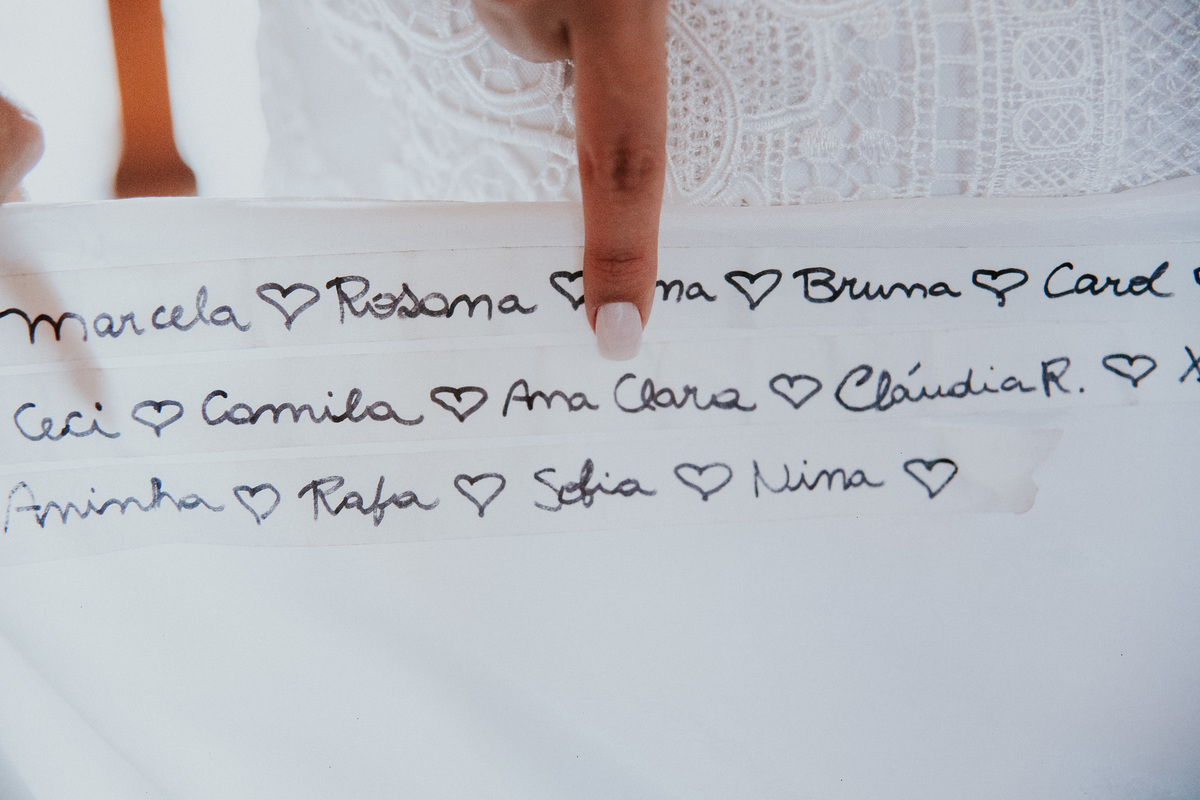 Marcela ♡ Rosana ♡ ♡ Bruna ♡ Carol
Ceci ♡ Camila ♡ Ana Clara ♡ Cláudia R. ♡
Aninha ♡ Rafa ♡ Sofia ♡ Nina ♡